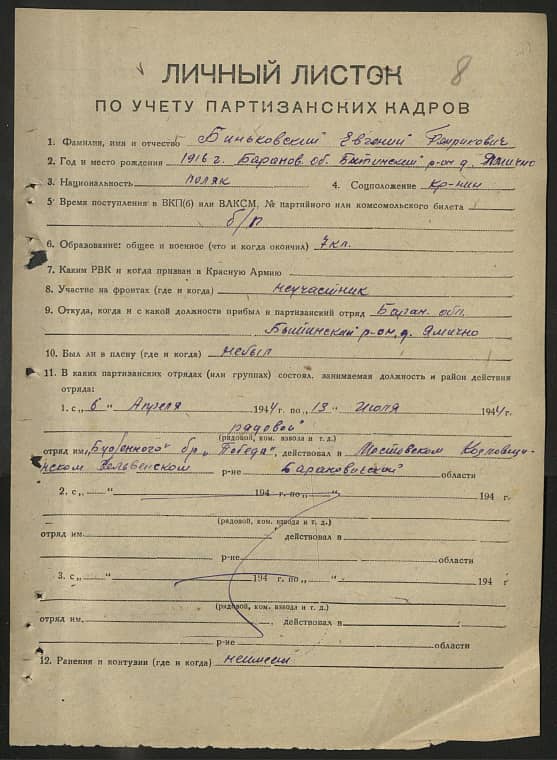 8
ЛИЧНЫЙ ЛИСТОК
ПО УЧЕТУ ПАРТИЗАНСКИХ КАДРОВ
1. Фамилия, имя и отчество Биньковский Евгений Генрикович
2. Год и место рождения 1916 г. Баранов. об. р-он д. Ямично
3. Национальность поляк 4. Соцположение кр-нин
5. Время поступления в ВКП(б) или ВЛКСМ, № партийного или комсомольского билета
б/п
6. Образование: общее и военное (что и когда окончил) 7 кл.
7. Каким РВК и когда призван в Красную Армию
8. Участие на фронтах (где и когда) неучастник
9. Откуда, когда и с какой должности прибыл в партизанский отряд Баран. обл.
р-он, д. Ямично
10. Был ли в плену (где и когда) небыл
11. В каких партизанских отрядах (или группах) состоял, занимаемая должность и район действия
отряда:
1. с „6" Апреля 1944 г. по „13" Июля 1944 г.
рядовой
(рядовой, ком. взвода и т. д.)
отряд им. „Буденного" бр „Победа", действовал в Мостовском
Зельвенском р-не Барановичской области
2. с „ " 194 г. по „ " 194 г.
(рядовой, ком. взвода и т. д.)
отряд им. действовал в
р-не области
3. с „ " 194 г. по „ " 194 г.
(рядовой, ком. взвода и т. д.)
отряд им. действовал в
р-не области
12. Ранения и контузии (где и когда) неимеет